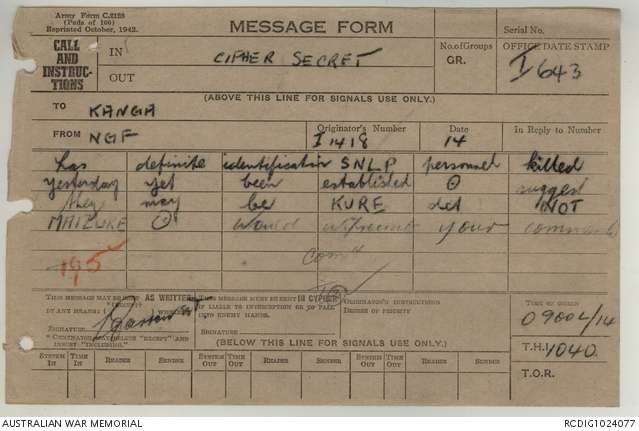 Army Form C.2128
(Pads of 100)
Reprinted October, 1942.
MESSAGE FORM
Serial No.
CALL AND INSTRUCTIONS
IN
CIPHER SECRET
No. of Groups
GR.
OFFICE DATE STAMP
I/643
OUT
(ABOVE THIS LINE FOR SIGNALS USE ONLY.)
TO KANGA
FROM NGF
Originator's Number
I 1418
Date
14
In Reply to Number
has definite identification SNLP personnel killed
yesterday yet been established ⊙ suggest
they may be KURE det NOT
MAIZURE ⊙ would appreciate your comments
195
THIS MESSAGE MAY BE SENT AS WRITTEN
BY ANY MEANS
SIGNATURE
THIS MESSAGE MUST BE SENT IN CYPHER
IF LIABLE TO INTERCEPTION OR TO FALL INTO ENEMY HANDS.
SIGNATURE
ORIGINATOR'S INSTRUCTIONS
DEGREE OF PRIORITY
TIME OF ORIGIN
0900L/14
(BELOW THIS LINE FOR SIGNALS USE ONLY.)
T.H.I. 1040
SYSTEM IN TIME IN READER SENDER SYSTEM OUT TIME OUT READER SENDER SYSTEM OUT TIME OUT READER SENDER
T.O.R.
AUSTRALIAN WAR MEMORIAL
RCDIG1024077